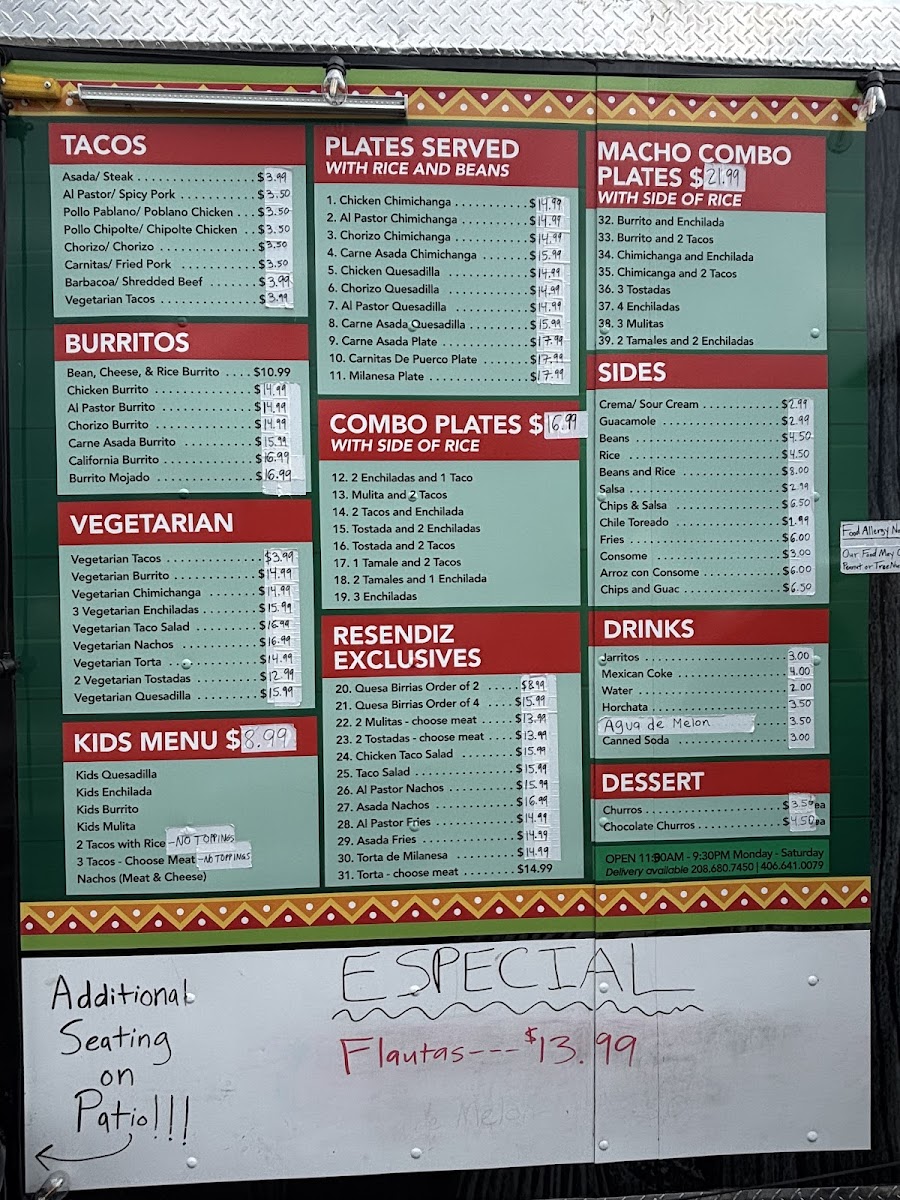 TACOS
Asada/ Steak . . . . . . . . . . . . . . . $3.99
Al Pastor/ Spicy Pork . . . . . . . . . $3.50
Pollo Pablano/ Poblano Chicken . . . $3.50
Pollo Chipolte/ Chipolte Chicken . . $3.50
Chorizo/ Chorizo . . . . . . . . . . . . $3.50
Carnitas/ Fried Pork . . . . . . . . . . $3.50
Barbacoa/ Shredded Beef . . . . . . $3.99
Vegetarian Tacos . . . . . . . . . . . . $3.99
BURRITOS
Bean, Cheese, & Rice Burrito . . . . $10.99
Chicken Burrito . . . . . . . . . . . . . $14.99
Al Pastor Burrito . . . . . . . . . . . . $14.99
Chorizo Burrito . . . . . . . . . . . . . $14.99
Carne Asada Burrito . . . . . . . . . . $15.99
California Burrito . . . . . . . . . . . . $16.99
Burrito Mojado . . . . . . . . . . . . . $16.99
VEGETARIAN
Vegetarian Tacos . . . . . . . . . . . . $3.99
Vegetarian Burrito . . . . . . . . . . . $14.99
Vegetarian Chimichanga . . . . . . . $14.99
3 Vegetarian Enchiladas . . . . . . . . $15.99
Vegetarian Taco Salad . . . . . . . . $16.99
Vegetarian Nachos . . . . . . . . . . $16.99
Vegetarian Torta . . . . . . . . . . . . $14.99
2 Vegetarian Tostadas . . . . . . . . . $12.99
Vegetarian Quesadilla . . . . . . . . . $15.99
KIDS MENU $8.99
Kids Quesadilla
Kids Enchilada
Kids Burrito
Kids Mulita
2 Tacos with Rice -NO TOPPINGS
3 Tacos - Choose Meat -NO TOPPINGS
Nachos (Meat & Cheese)
PLATES SERVED
WITH RICE AND BEANS
1. Chicken Chimichanga . . . . . . . . . $14.99
2. Al Pastor Chimichanga . . . . . . . . $14.99
3. Chorizo Chimichanga . . . . . . . . . $14.99
4. Carne Asada Chimichanga . . . . . . $15.99
5. Chicken Quesadilla . . . . . . . . . . . $14.99
6. Chorizo Quesadilla . . . . . . . . . . . $14.99
7. Al Pastor Quesadilla . . . . . . . . . . $14.99
8. Carne Asada Quesadilla . . . . . . . $15.99
9. Carne Asada Plate . . . . . . . . . . . $17.99
10. Carnitas De Puerco Plate . . . . . . $17.99
11. Milanesa Plate . . . . . . . . . . . . . $17.99
COMBO PLATES $16.99
WITH SIDE OF RICE
12. 2 Enchiladas and 1 Taco
13. Mulita and 2 Tacos
14. 2 Tacos and Enchilada
15. Tostada and 2 Enchiladas
16. Tostada and 2 Tacos
17. 1 Tamale and 2 Tacos
18. 2 Tamales and 1 Enchilada
19. 3 Enchiladas
RESENDIZ
EXCLUSIVES
20. Quesa Birrias Order of 2 . . . . . $8.99
21. Quesa Birrias Order of 4 . . . . . $15.99
22. 2 Mulitas - choose meat . . . . . $13.99
23. 2 Tostadas - choose meat . . . . $13.99
24. Chicken Taco Salad . . . . . . . . $15.99
25. Taco Salad . . . . . . . . . . . . . . $15.99
26. Al Pastor Nachos . . . . . . . . . $15.99
27. Asada Nachos . . . . . . . . . . . $16.99
28. Al Pastor Fries . . . . . . . . . . . $14.99
29. Asada Fries . . . . . . . . . . . . . $14.99
30. Torta de Milanesa . . . . . . . . . $14.99
31. Torta - choose meat . . . . . . . $14.99
MACHO COMBO
PLATES $21.99
WITH SIDE OF RICE
32. Burrito and Enchilada
33. Burrito and 2 Tacos
34. Chimichanga and Enchilada
35. Chimicanga and 2 Tacos
36. 3 Tostadas
37. 4 Enchiladas
38. 3 Mulitas
39. 2 Tamales and 2 Enchiladas
SIDES
Crema/ Sour Cream . . . . . . . . . . $2.99
Guacamole . . . . . . . . . . . . . . . . $2.99
Beans . . . . . . . . . . . . . . . . . . . $4.50
Rice . . . . . . . . . . . . . . . . . . . . $4.50
Beans and Rice . . . . . . . . . . . . . $8.00
Salsa . . . . . . . . . . . . . . . . . . . . $2.99
Chips & Salsa . . . . . . . . . . . . . . $6.50
Chile Toreado . . . . . . . . . . . . . . $1.99
Fries . . . . . . . . . . . . . . . . . . . . $6.00
Consome . . . . . . . . . . . . . . . . . $3.00
Arroz con Consome . . . . . . . . . . $6.00
Chips and Guac . . . . . . . . . . . . . $6.50
DRINKS
Jarritos . . . . . . . . . . . . . . . . . . 3.00
Mexican Coke . . . . . . . . . . . . . . 4.00
Water . . . . . . . . . . . . . . . . . . . 2.00
Horchata . . . . . . . . . . . . . . . . . 3.50
Agua de Melon 3.50
Canned Soda . . . . . . . . . . . . . . 3.00
DESSERT
Churros . . . . . . . . . . . . . . . . . . $3.50ea
Chocolate Churros . . . . . . . . . . . $4.50ea
OPEN 11:30AM - 9:30PM Monday - Saturday
Delivery available 208.680.7450 | 406.641.0079
Food Allergy
Our Food May
Peanut or Tree
Additional
Seating
on
Patio!!!
ESPECIAL
Flautas---$13.99